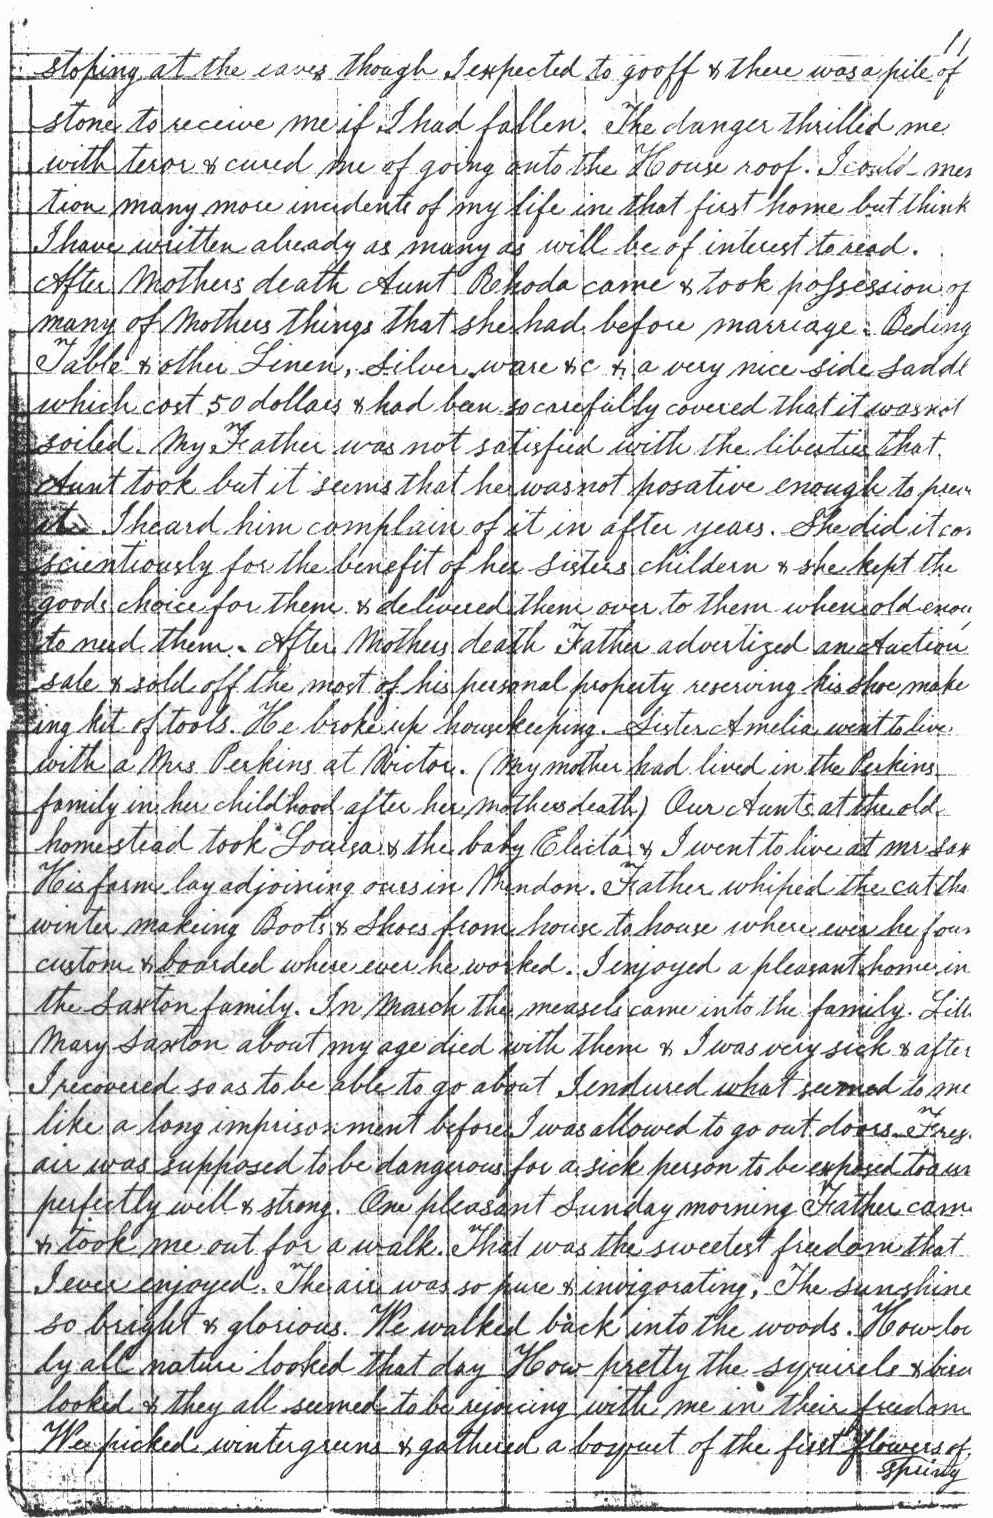 11
stoping at the eaves though I expected to go off & there was a pile of
stone to receive me if I had fallen. The danger thrilled me
with teror & cured me of going onto the House roof. I could men
tion many more incidents of my life in that first home but think
I have written already as many as will be of interest to read.
After Mothers death Aunt Rhoda came & took possession of
many of Mothers things that she had before marriage. Beding
Table & other Linen, Silver ware &c & a very nice side Saddl
which cost 50 dollars & had been so carefully covered that it was not
soiled. My Father was not satisfied with the liberties that
Aunt took but it seems that he was not posative enough to prev
it. I heard him complain of it in after years. She did it co
scientiously for the benefit of her Sisters childern & she kept the
goods choice for them & delivered them over to them when old enou
to need them. After Mothers death Father advertized an Auction
sale & sold off the most of his personal property reserving his shoe make
ing kit of tools. He broke up housekeeping. Sister Amelia went to live
with a Mrs Perkins at Victor. (My mother had lived in the Perkins
family in her childhood after her mothers death) Our Aunts at the old
homestead took Louisa & the baby Electa & I went to live at Mr Sax
His farm lay adjoining ours in Mendon. Father whiped the cat tha
winter making Boots & Shoes from house to house where ever he foun
custom & boarded where ever he worked. I enjoyed a pleasant home in
the Saxton family. In March the measels came into the family. Litt
Mary Saxton about my age died with them & I was very sick & after
I recovered so as to be able to go about I endured what seemed to me
like a long imprisonment before I was allowed to go out doors. Fres
air was supposed to be dangerous for a sick person to be exposed to
perfectly well & strong. One pleasant Sunday morning Father came
& took me out for a walk. That was the sweetest freedom that
I ever enjoyed. The air was so pure & invigorating, The sunshine
so bright & glorious. We walked back into the woods. How lov
ly all nature looked that day How pretty the squirels & bird
looked & they all seemed to be rejoicing with me in their freedom
We picked wintergreens & gathered a boquet of the first flowers of
spring